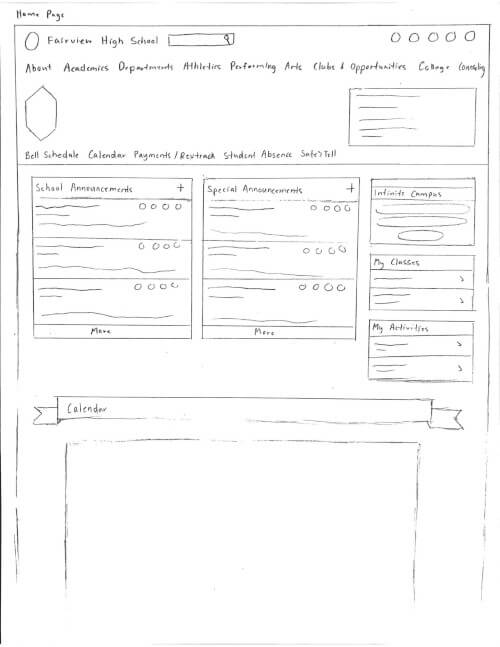 Home Page
Fairview High School
About Academics Departments Athletics Performing Arts Clubs & Opportunities College Counseling
Bell Schedule Calendar Payments / Revtrack Student Absence Safe2Tell
School Announcements +
Special Announcements +
Infinite Campus
My Classes
My Activities
More
More
Calendar